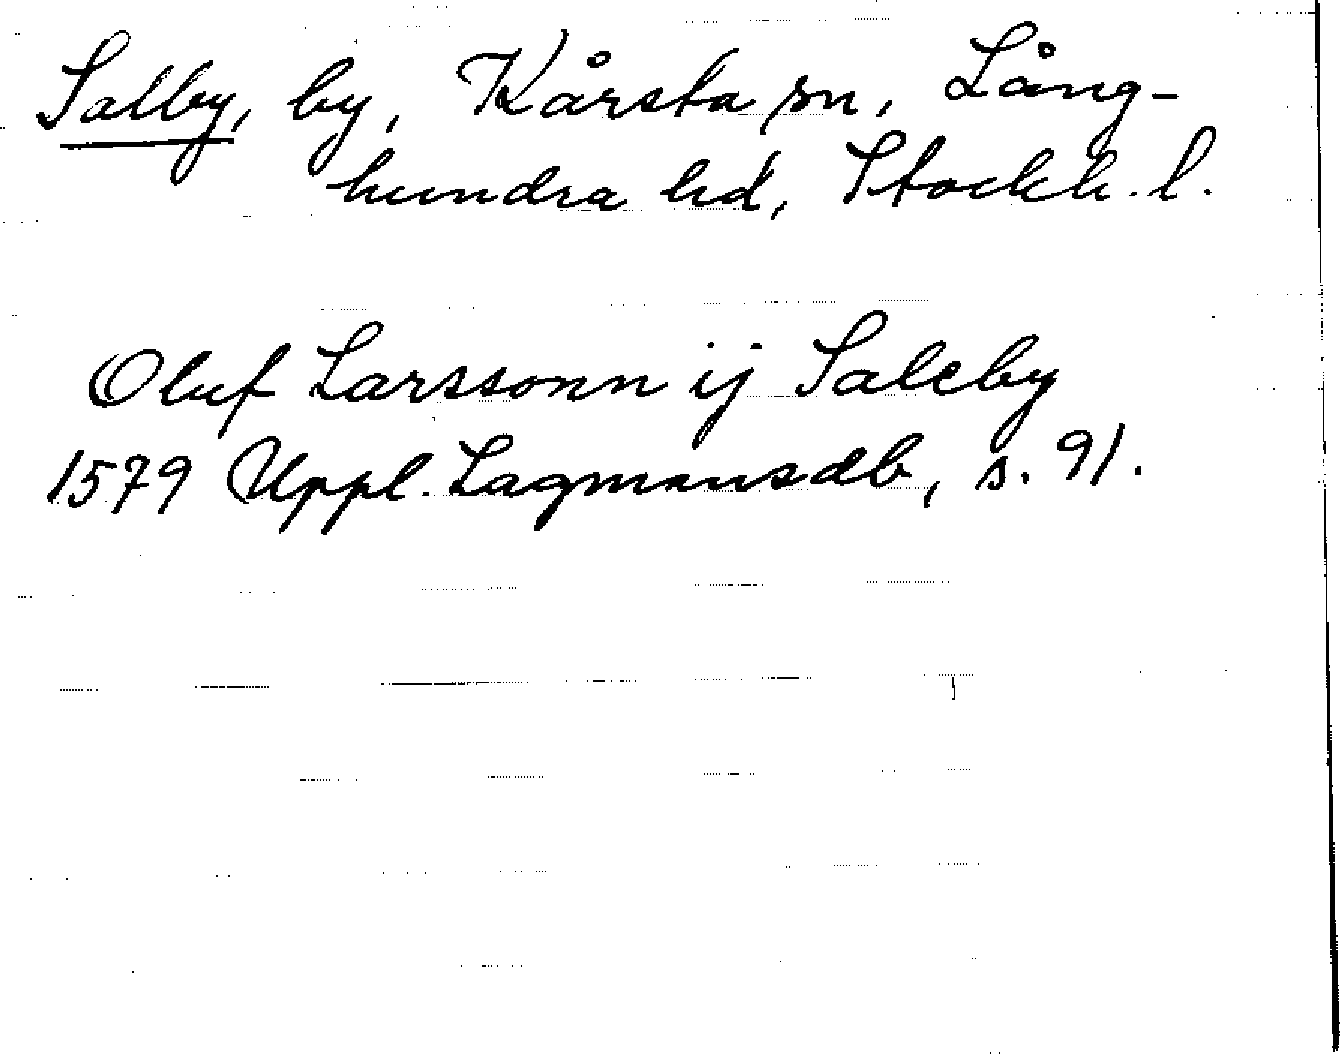 Salby, by, Kårsta sn, Lång-
hundra hd, Stockh. l.
Oluf Larssonn ij Saleby
1579 Uppl. Lagmansdb, s. 91.